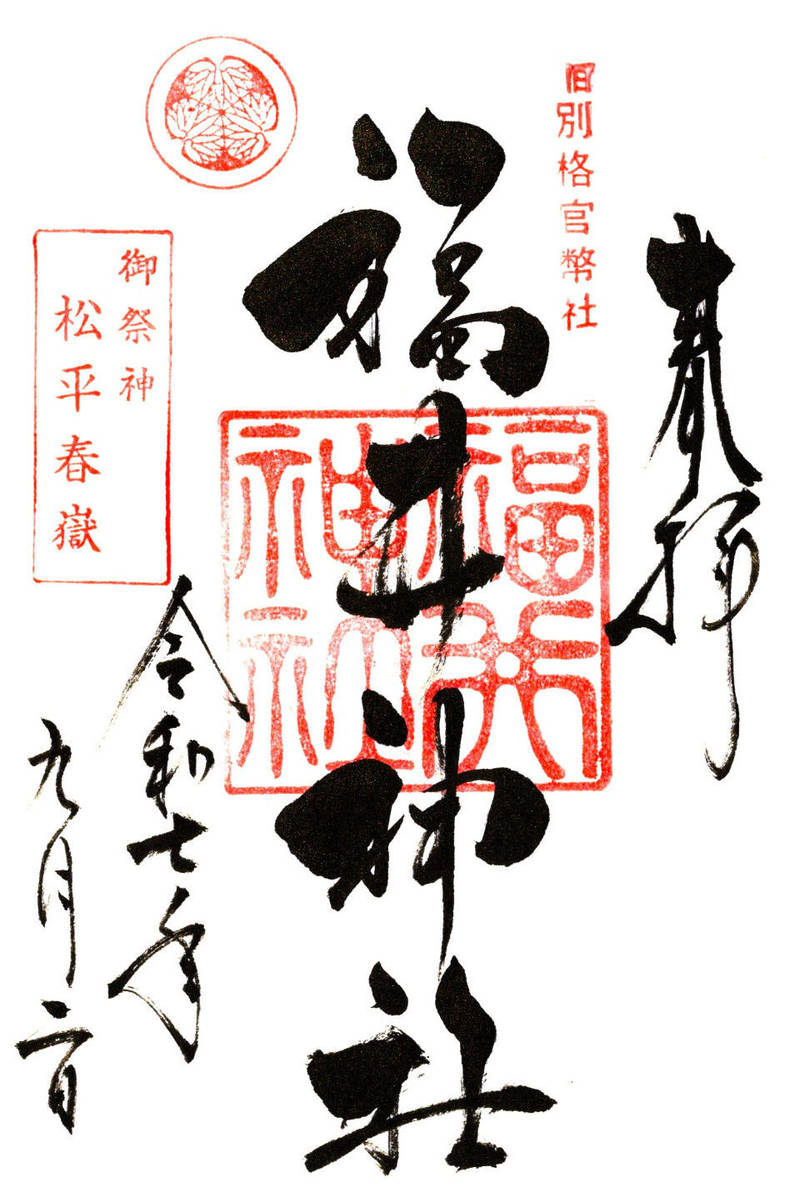 奉拝
旧別格官幣社
福井神社
福井
神社
御祭神
松平春嶽
令和七年
九月二日